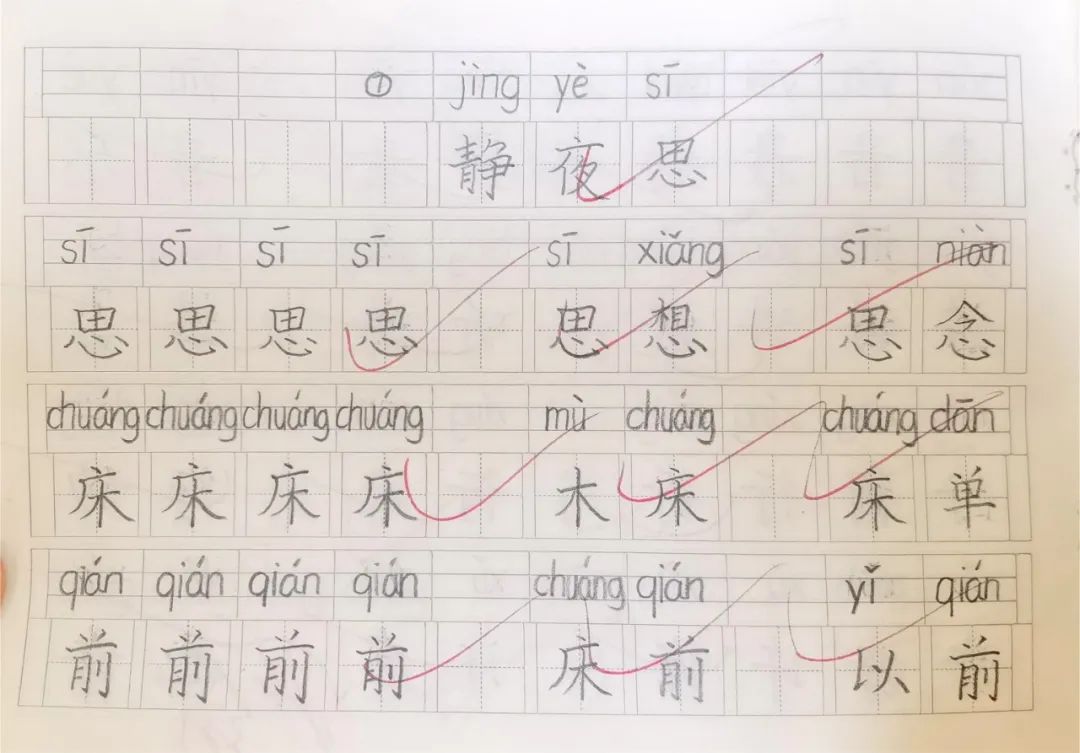 ① jìng yè sī
静夜思
sī sī sī sī sī xiǎng sī niàn
思思思思 思想 思念
chuáng chuáng chuáng chuáng mù chuáng chuáng dān
床床床床 木床 床单
qián qián qián qián chuáng qián yǐ qián
前前前前 床前 以前